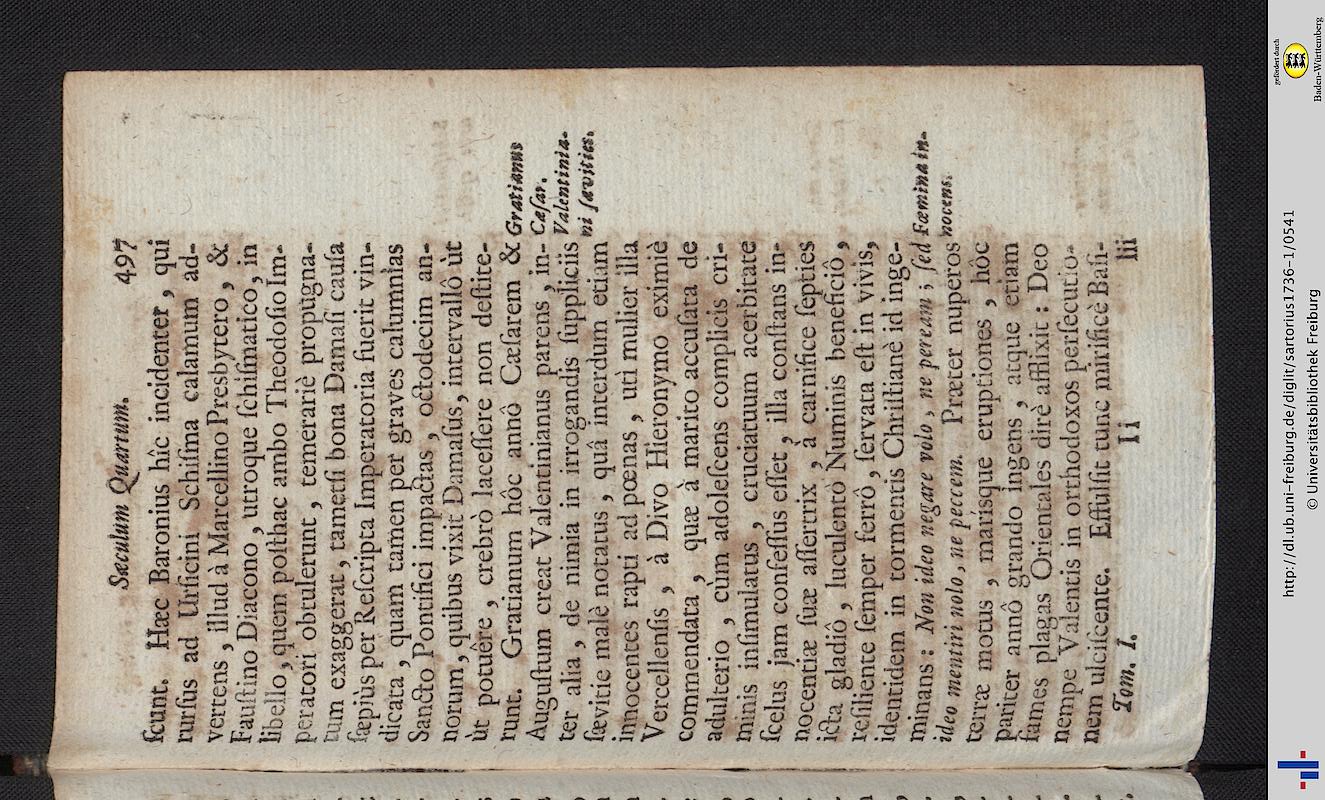 Sæculum Quartum. 497
ſcunt. Hæc Baronius hîc incidenter, qui
rurſus ad Urſicini Schiſma calamum ad-
vertens, illud à Marcellino Presbytero, &
Fauſtino Diacono, utroque ſchiſmatico, in
libello, quem poſthac ambo Theodoſio Im-
peratori obtulerunt, temerariè propugna-
tum exaggerat, tametſi bona Damaſi cauſa
ſæpiùs per Reſcripta Imperatoria fuerit vin-
dicata, quam tamen per graves calumnias
Sancto Pontifici impactas, octodecim an-
norum, quibus vixit Damaſus, intervallô ùt
ùt potuêre, crebrò laceſſere non deſtite-
runt. Gratianum hôc annô Cæſarem &
Auguſtum creat Valentinianus parens, in-
ter alia, de nimia in irrogandis ſuppliciis
ſævitie malè notatus, quâ interdum etiam
innocentes rapti ad pœnas, utì mulier illa
Vercellenſis, à Divo Hieronymo eximiè
commendata, quæ à marito accuſata de
adulterio, cùm adoleſcens complicis cri-
minis inſimulatus, cruciatuum acerbitate
ſcelus jam confeſſus eſſet, illa conſtans in-
nocentiæ ſuæ aſſertrix, à carnifice ſepties
icta gladiô, luculentô Numinis beneficiô,
reſiliente ſemper ferrô, ſervata eſt in vivis,
identidem in tormentis Chriſtianè id inge-
minans: Non ideo negare volo, ne peream; ſed
ideo mentiri nolo, ne peccem. Præter nuperos
terræ motus, mariſque eruptiones, hôc
pariter annô grando ingens, atque etiam
fames plagas Orientales dirè afflixit: Deo
nempe Valentis in orthodoxos perſecutio-
nem ulciſcente. Effulſit tunc mirificè Baſi-
Tom. I. Ii lii
Gratianus
Cæſar.
Valentinia-
ni ſævities.
Fœmina in-
nocens.
http://dl.ub.uni-freiburg.de/diglit/sartorius1736-1/0541
© Universitätsbibliothek Freiburg
gefördert durch
Baden-Württemberg